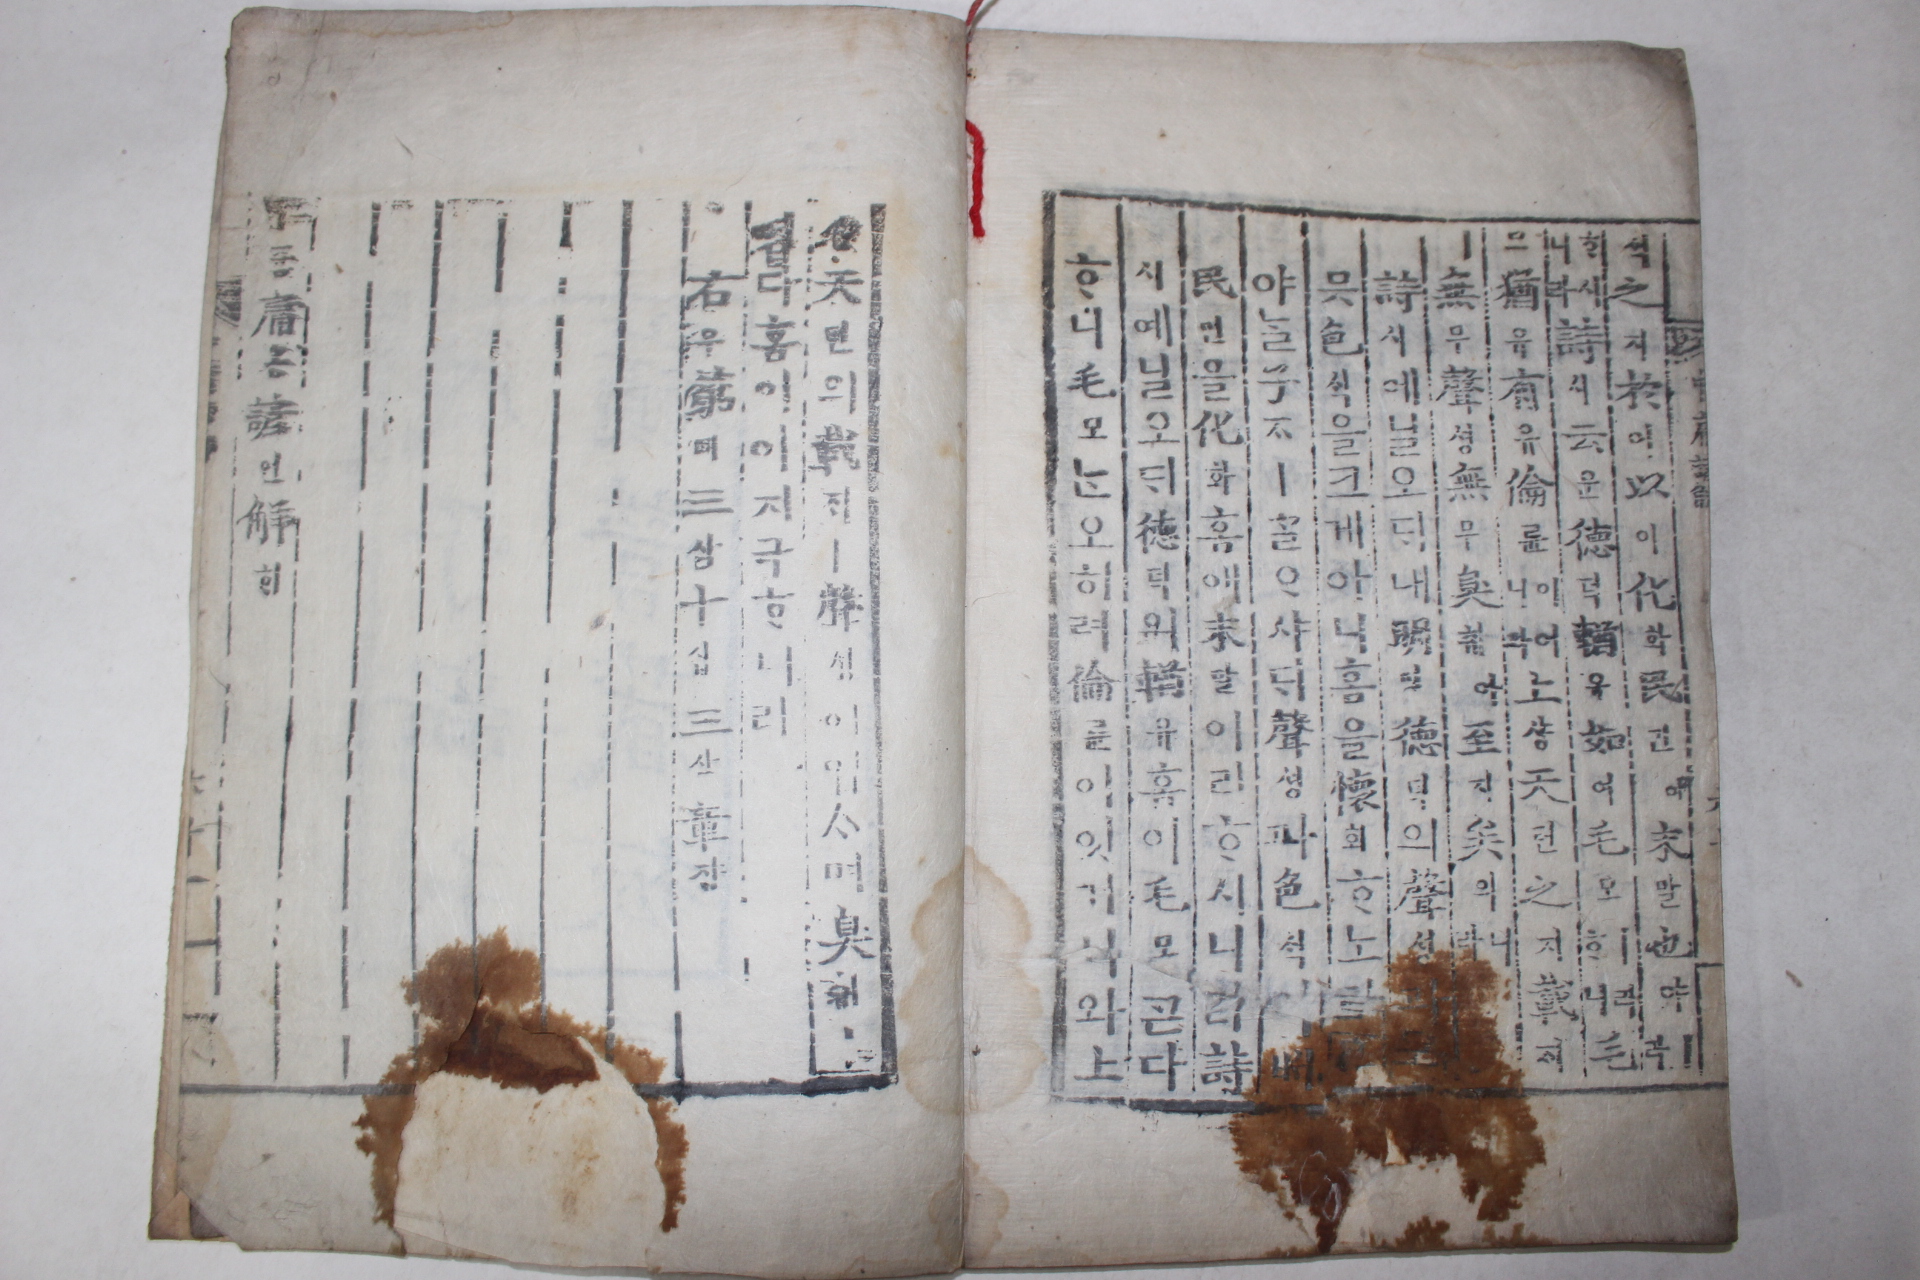 식之지於어以이化화民민애末말也야라
ᄒᆞ시니라詩시云운德덕輶유如여毛모ㅣ라ᄒᆞ니毛
모猶유有유倫륜이어니와上샹天텬之지載ᄌᆡ
ㅣ無무聲셩無무臭ᄎᆔ아至지矣의니라
詩시예닐오ᄃᆡ내明명德덕의聲셩
믓色식을크게아니홈을懷회ᄒᆞ노라
야ᄂᆞᆯ子ᄌᆞㅣᄀᆞᆯᄋᆞ샤ᄃᆡ聲셩과色식
民민을化화홈애末말이라ᄒᆞ시니라詩
시예닐오ᄃᆡ德덕의輶유홈이毛모ᄀᆞᆮ다
ᄒᆞ니毛모ᄂᆞᆫ오히려倫륜이잇거니와上
天텬의載ᄌᆡㅣ聲셩이며臭ᄎᆔ
업다홈이아지극ᄒᆞ니라
右우第뎨三삼十십三삼章쟝
듕庸용諺언解ᄒᆡ